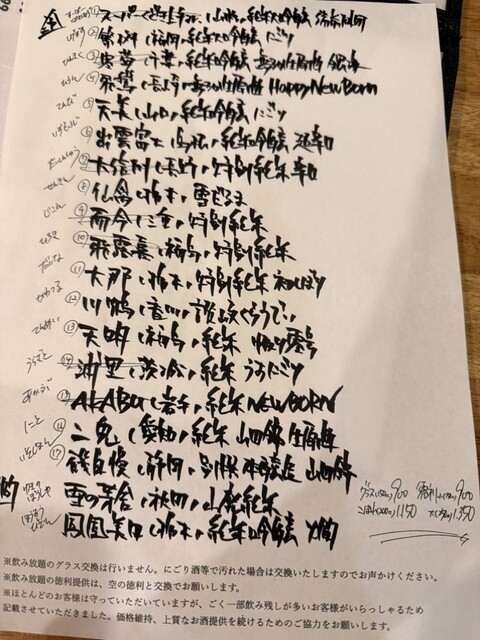 ① スーパーくどき上手 山形 純米大吟醸
② 福岡 純米大吟醸 にごり
③ 千葉 純米吟醸
④ 飛鸞 長崎 HAPPY New Born
てんび ⑤ 天美 山口 純米吟醸 にごり
いずもふじ ⑥ 出雲富士 島根 純米吟醸 超辛口
だいしんしゅう ⑦ 大信州 長野 特別純米 辛口
せんきん ⑧ 仙禽 栃木 雪だるま
じこん ⑨ 而今 三重 特別純米
ひろき ⑩ 飛露喜 福島 特別純米
だいな ⑪ 大那 栃木 特別純米 初しぼり
かわつる ⑫ 川鶴 香川 讃岐くらうでぃ
てんめい ⑬ 天明 福島 純米 零号
うらざと ⑭ 浦里 茨城 純米 うすにごり
あかぶ ⑮ AKABU 岩手 純米 NEWBORN
にと ⑯ 二兎 愛知 純米 山田錦 生原酒
⑰ 静岡 特別本醸造 山田錦
ゆきのぼうしゃ 雪の茅舎 秋田 山廃純米
ほうおうびでん 鳳凰美田 栃木 純米吟醸
グラス 900 徳利 900
1,150 1,350
※飲み放題のグラス交換は行いません。にごり酒等で汚れた場合は交換いたしますのでお声かけください。
※飲み放題の徳利提供は、空の徳利と交換でお願いします。
※ほとんどのお客様は守っていただいていますが、ごく一部飲み残しが多いお客様がいらっしゃるため
記載させていただきました。価格維持、上質なお酒提供を続けるためのご協力をお願いします。